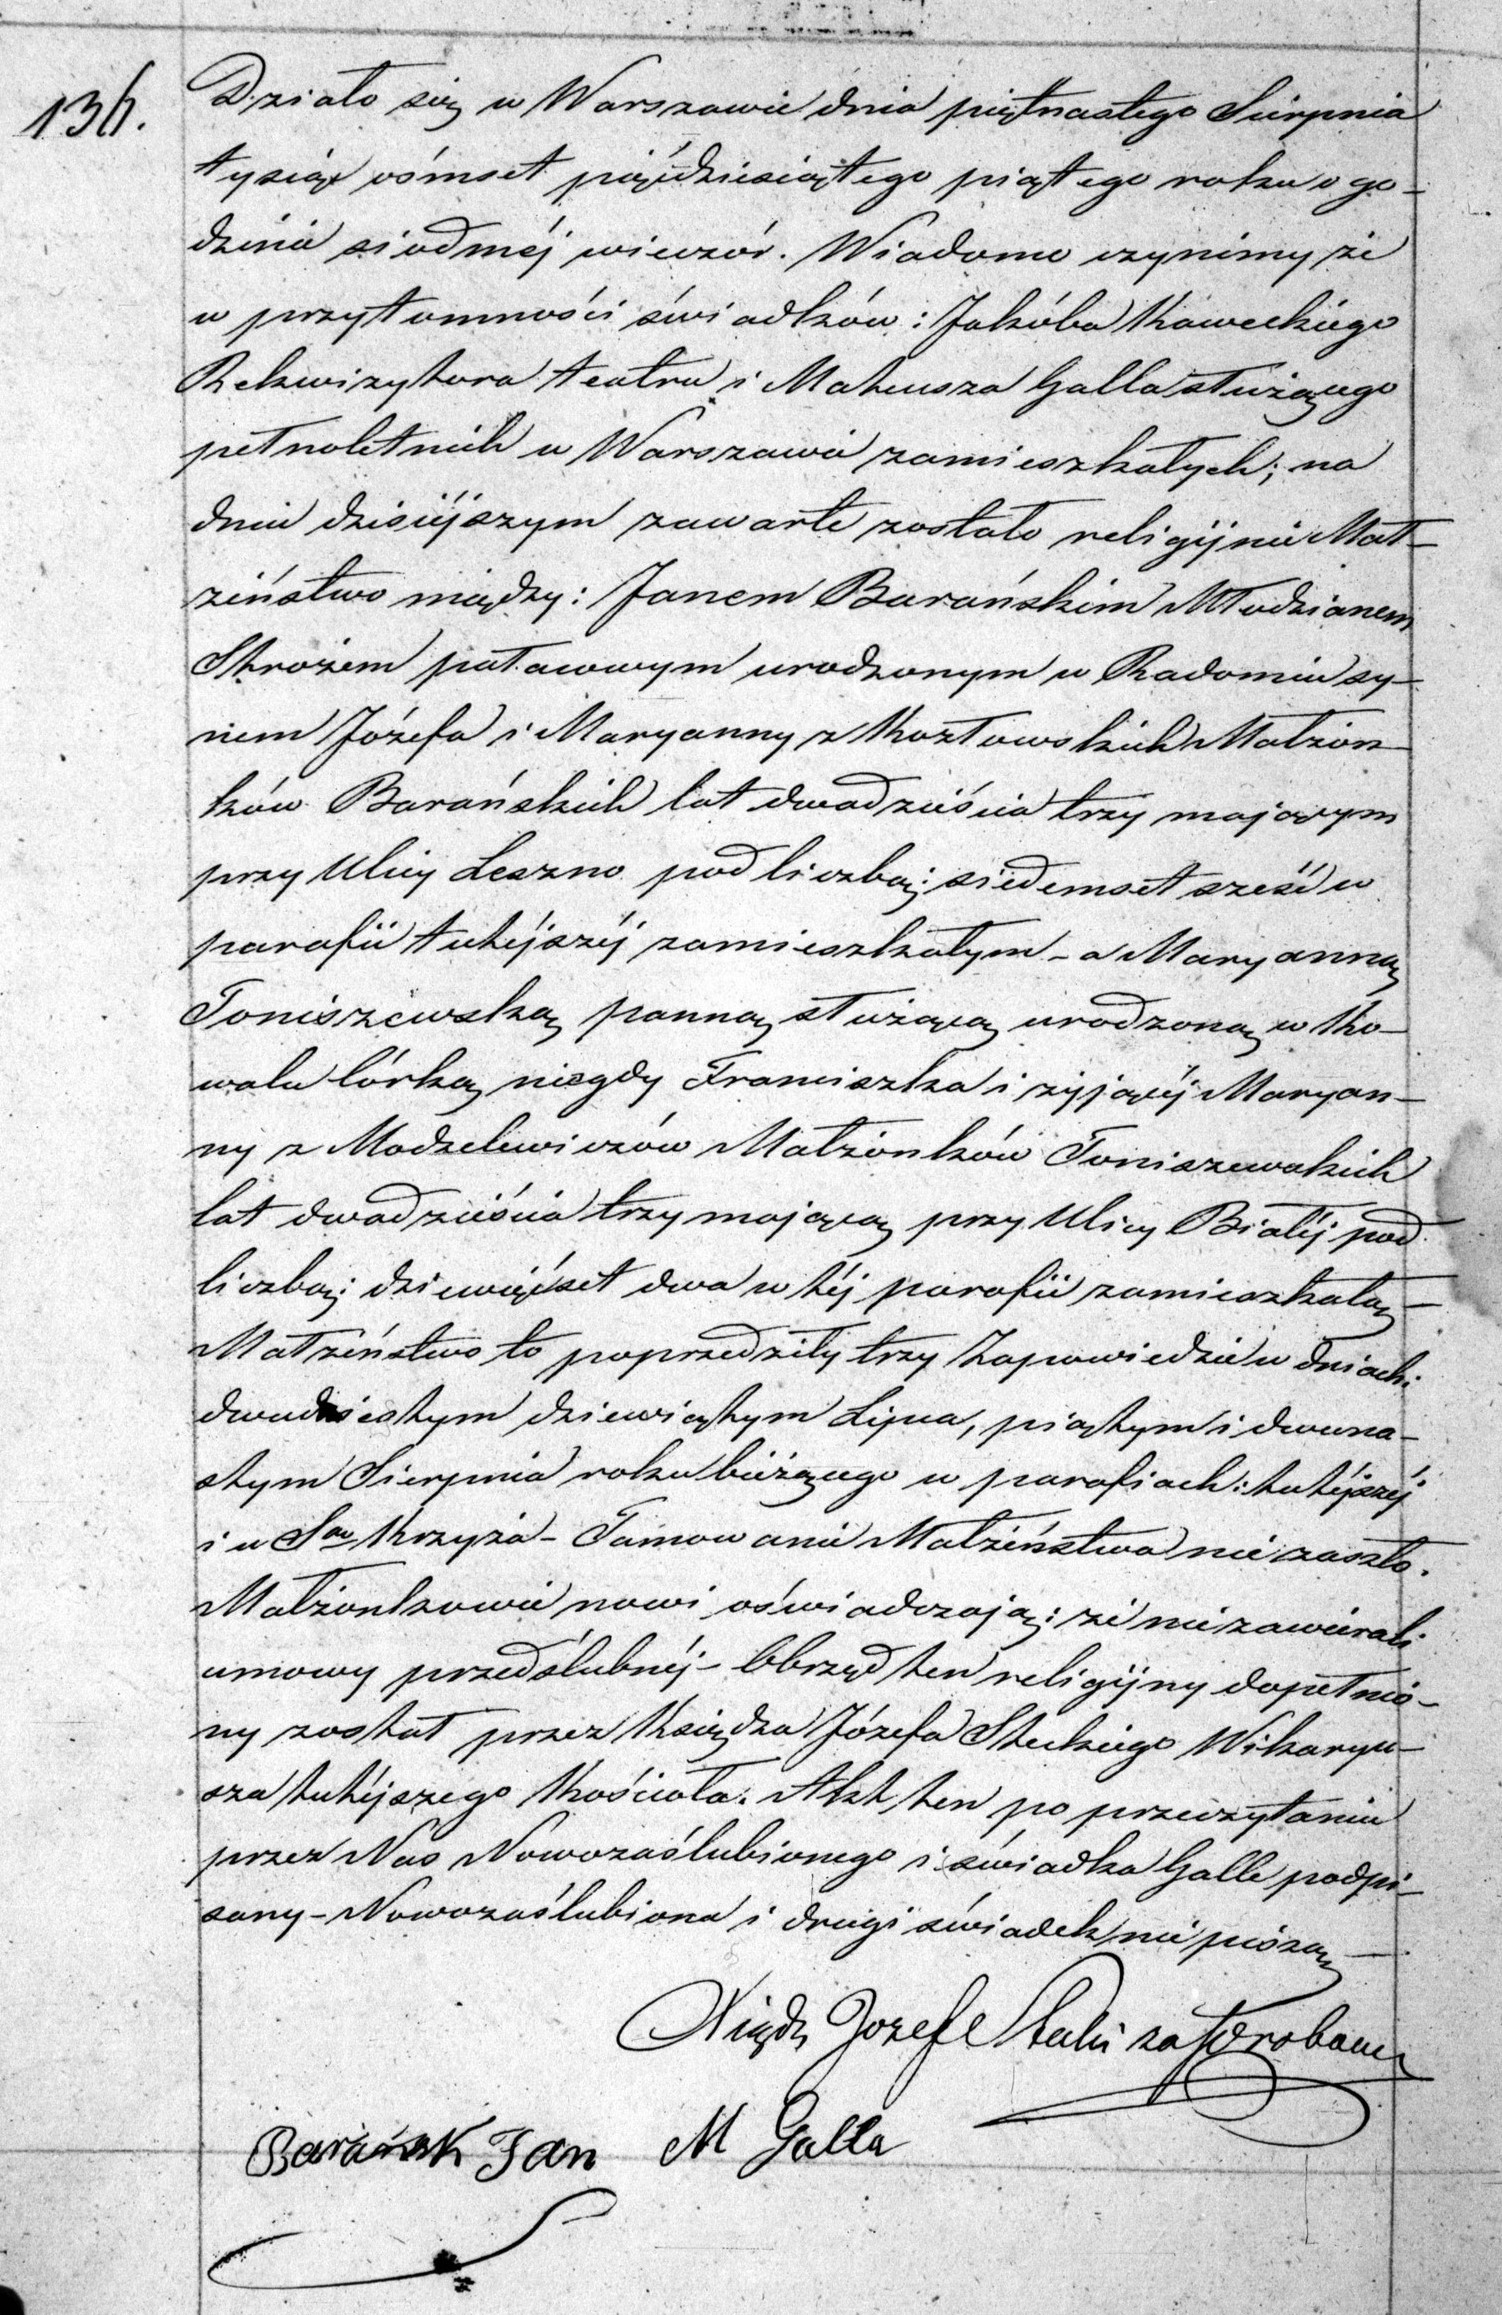 136.
Działo się w Warszawie dnia piętnastego Sierpnia
tysiąc ośmset pięćdziesiątego piątego roku o go-
dzinie siodméj wieczór. Wiadomo czynimy że
w przytomności świadków: Jakóba Kaweckiego
Rekwizytora teatru i Mateusza Galla służącego
pełnoletnich w Warszawie zamieszkałych; na
dniu dzisiéjszym zawarte zostało religijnie Mał-
żeństwo między: Janem Barańskim Młodzianem
Stróżem pałacowym urodzonym w Radomiu sy-
nem Józefa i Maryanny z Kozłowskich Małżon-
ków Barańskich lat dwadzieścia trzy mającym
przy Ulicy Leszno pod liczbą siedemset sześć w
parafii tutéjszéj zamieszkałym - a Maryanną
Toniszewską panną służącą urodzoną w Ko-
walu Córką niegdy Franciszka i żyjącéj Maryan-
ny z Modzelewiczów Małżonków Toniszewskich
lat dwadzieścia trzy mającą przy Ulicy Białéj pod
liczbą dziewięćset dwa w téj parafii zamieszkałą -
Małżeństwo to poprzedziły trzy Zapowiedzie w dniach:
dwudziestym dziewiątym Lipca, piątym i dwuna-
stym Sierpnia roku bieżącego w parafiach: tutéjszéj
i w Sgo Krzyża - Tamowanie Małżeństwa nie zaszło.
Małżonkowie nowi oświadczają: że nie zawierali
umowy przedślubnéj - Obrzęd ten religijny dopełnio-
ny został przez Księdza Józefa Steckiego Wikaryu-
sza tutéjszego Kościoła. Akt ten po przeczytaniu
przez Nas Nowozaślubionego i świadka Galle podpi-
sany - Nowozaślubiona i drugi świadek nie piszą -
Xiądz Jozef Stecki za
Barański Jan M Galla